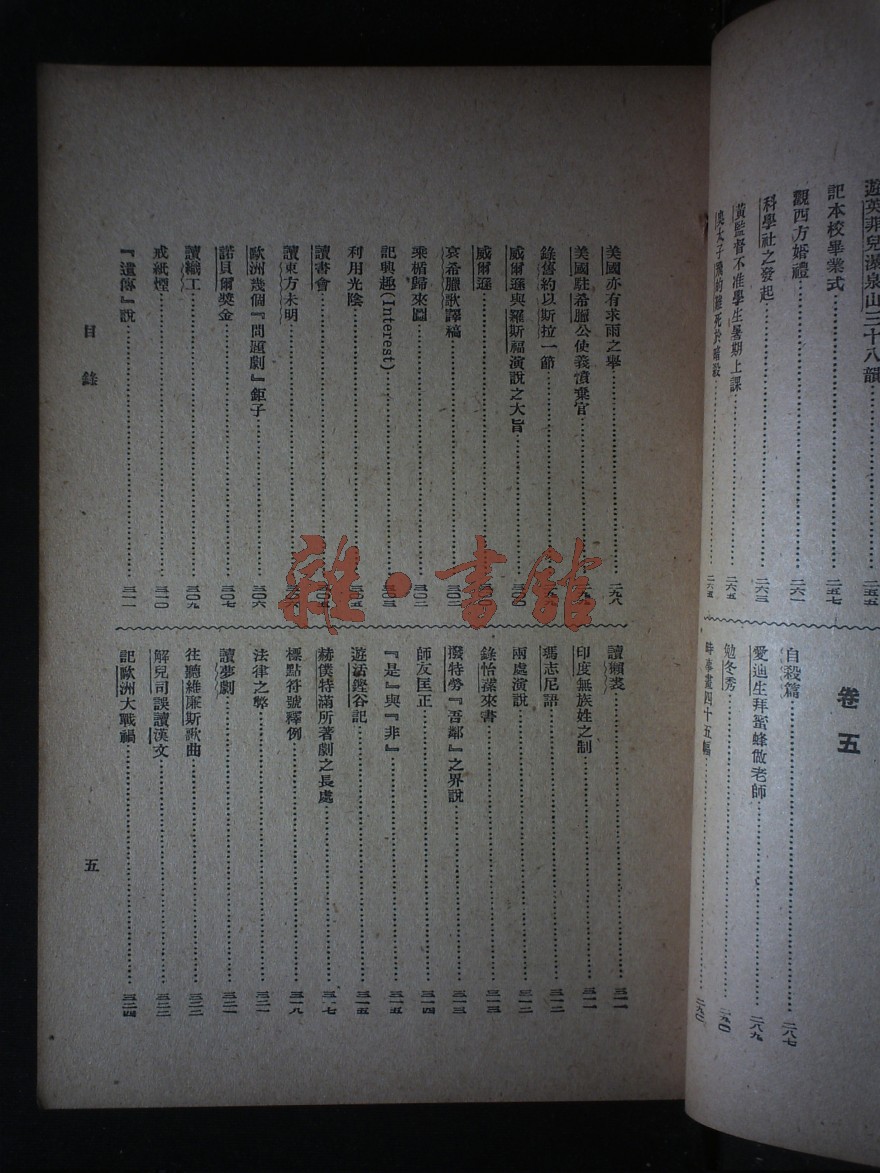 遊英菲兒瀑泉山三十八韻
記本校畢業式……二五七
觀西方婚禮……二六一
科學社之發起……二六三
黃監督不准學生暑期上課……二六五
奧太子飛的難死於暗殺……二六五
卷五
自殺篇……二八七
愛迪生拜蜜蜂做老師……二八九
勉冬秀……二九〇
時事畫四十五幅……二九〇
美國亦有求雨之舉……二九八
美國駐希臘公使義憤棄官
錄舊約以斯拉一節
威爾遜與羅斯福演說之大旨
威爾遜
哀希臘歌譯稿……三〇二
乘楯歸來圖……三〇二
記興趣(Interest)……三〇三
利用光陰
讀書會
讀東方未明
歐洲幾個『問題劇』鉅子……三〇六
諾貝爾獎金……三〇七
讀織工……三〇九
戒紙煙……三一〇
『遺傳』說……三一一
讀獺裘……三一一
印度無族姓之制……三一一
瑪志尼語……三一二
兩處演說……三一二
錄怡蓀來書……三一三
潑特勞『吾鄰』之界說……三一三
師友匡正……三一四
『是』與『非』……三一五
遊活鏗谷記……三一五
赫僕特滿所著劇之長處……三一七
標點符號釋例……三一八
法律之弊……三二一
讀夢劇……三二一
往聽維廉斯歌曲……三二二
解兒司誤讀漢文……三二二
記歐洲大戰禍……三二四
目錄
五
雜·書館